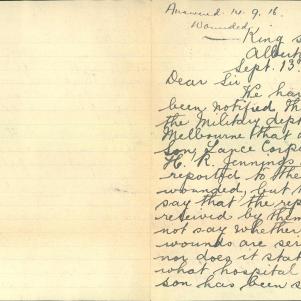 Answered 14.9.16.
Wounded
King S
Albert
Sept. 13
Dear Sir
We hav
been notified th
the Military dept
Melbourne that o
Son, Lance Corpo
H. R. Jennings
reported to the
wounded, but
say that the rep
received by them
not say whether
wounds are ser
nor does it stat
what hospital
son has been s